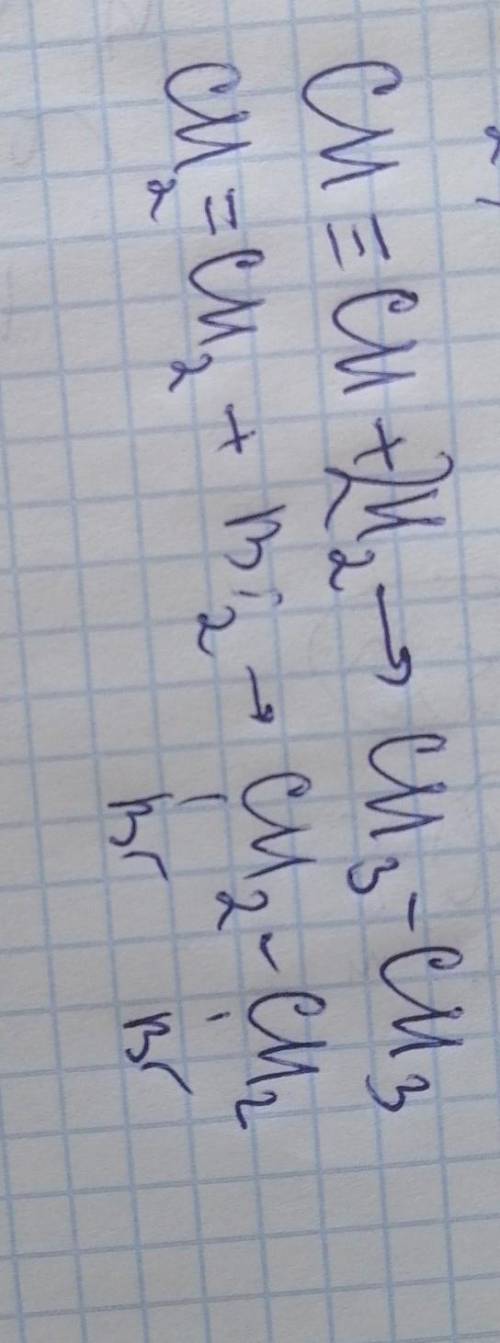 CH ≡ CH + 2H₂ → CH₃ - CH₃
CH₂ = CH₂ + Br₂ → CH₂ - CH₂
Br Br